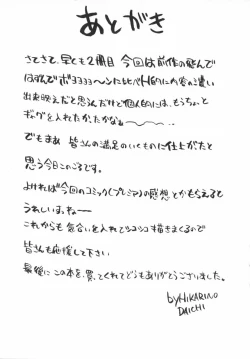 あとがき
さてさて、早くも2冊目 今回は前作の飛んで
出来映えだと思うんだけど個人的には、もうちょっと
ギャグを入れたかったかなぁ〜
でもまぁ 皆さんの満足のいくものに仕上がたと
思う今日このごろです。
よければ今回のコミック(プレミア)の感想とかもらえると
うれしいっす。ねー
これからも気合いを入れてシコシコ描きまくるので
皆さんも応援して下さい
最後に この本を、買ってくれてどうもありがとうございました。
by HIKARINO
DAICHI